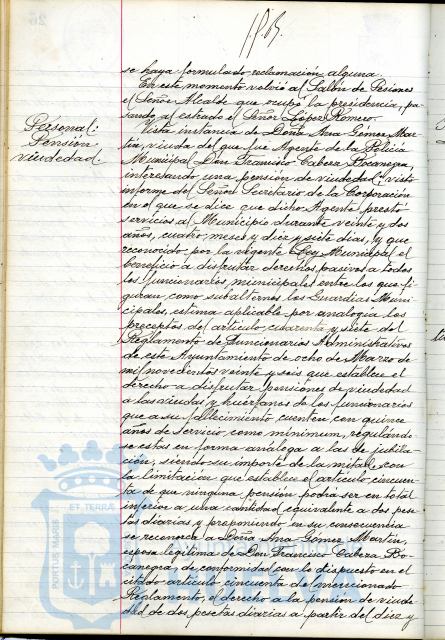 se haya formulado reclamación alguna.
En este momento volvió al Salón de Sesiones
el Señor Alcalde que ocupó la presidencia, pa-
sando al estrado el Señor López Romero.
Personal:
Pensión
viudedad.
Vista instancia de Doña Ana Gómez Mar-
tín, viuda del que fue Agente de la Policía
Municipal Don Francisco Cabeza Bocanegra,
interesando una pensión de viudedad; visto
informe del Señor Secretario de la Corporación
en el que se dice que dicho Agente prestó
servicios al Municipio durante veinte y dos
años, cuatro meses y diez y siete días, y que
reconocido por la vigente Ley Municipal el
beneficio a disfrutar derechos pasivos a todos
los funcionarios municipales entre los que fi-
guran como subalternos los Guardias Muni-
cipales, estima aplicable por analogía los
preceptos del artículo cuarenta y siete del
Reglamento de Funcionarios Administrativos
de este Ayuntamiento de ocho de Marzo de
mil novecientos veinte y seis que establece el
derecho a disfrutar pensiones de viudedad
a las viudas y huérfanos de los funcionarios
que a su fallecimiento cuenten con quince
años de servicio como mínimum, regulando-
se estas en forma análoga a las de jubila-
ción, siendo su importe de la mitad, con
la limitación que establece el artículo cincuen-
ta de que ninguna pensión podrá ser en total
inferior a una cantidad equivalente a dos pese-
tas diarias y proponiendo en su consecuencia
se reconozca a Doña Ana Gómez Martín,
esposa legítima de Don Francisco Cabeza Bo-
canegra, de conformidad con lo dispuesto en el
citado artículo cincuenta del mencionado
Reglamento, el derecho a la pensión de viude-
dad de dos pesetas diarias a partir del diez y
PORTUS MARIS ET TERRA